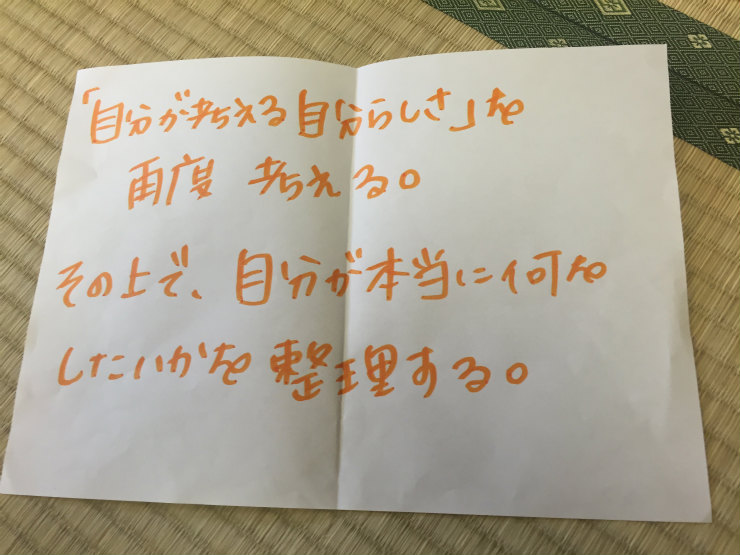 「自分が考える自分らしさ」を
再度 考える。
その上で、自分が本当に何を
したいかを整理する。